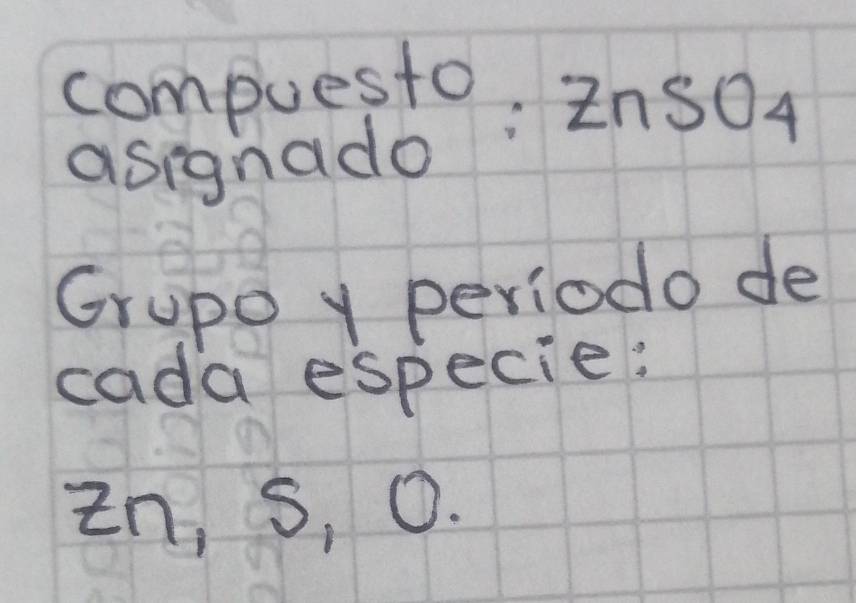 compuesto
asignado : ZnSO4
Grupo y periodo de
cada especie:
Zn, S, O.